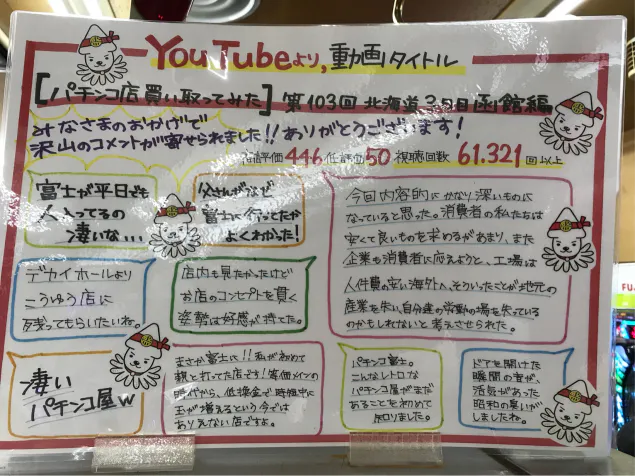 YouTubeより,動画タイトル
[パチンコ店買い取ってみた] 第103回 北海道3日目函館編
みなさまのおかげで
沢山のコメントが寄せられました!!ありがとうございます!
高評価446 低評価50 視聴回数 61.321回以上
富士が平日でも
人入ってるの
凄いな...
父さんがなぜ
富士に行ってたか
よくわかった!
今回内容的にかなり深いものに
なっていると思った。消費者の私たちは
安くて良いものを求めるがあまり、また
企業の消費者に応えようと、工場は
人件費の安い海外へ。そういったことが地元の
産業を失い、自分達の労働の場を失っている
のかもしれないと考えさせられた。
デカイホールより
こうゆう店に
残ってもらいたいね。
店内も見たかったけど
お店のコンセプトを貫く
姿勢は好感が持てた。
凄い
パチンコ屋w
まさか富士に!!私が初めて
親と打ってた店です!等価メインの
時代から、低換金で時短中に
玉が増えるという今では
ありえない店ですよ。
パチンコ富士。
こんなレトロな
パチンコ屋がまだ
あることを初めて
知りました。
ドアを開けた
瞬間の音が、
活気があった
昭和の臭いが
しましたね。
FU